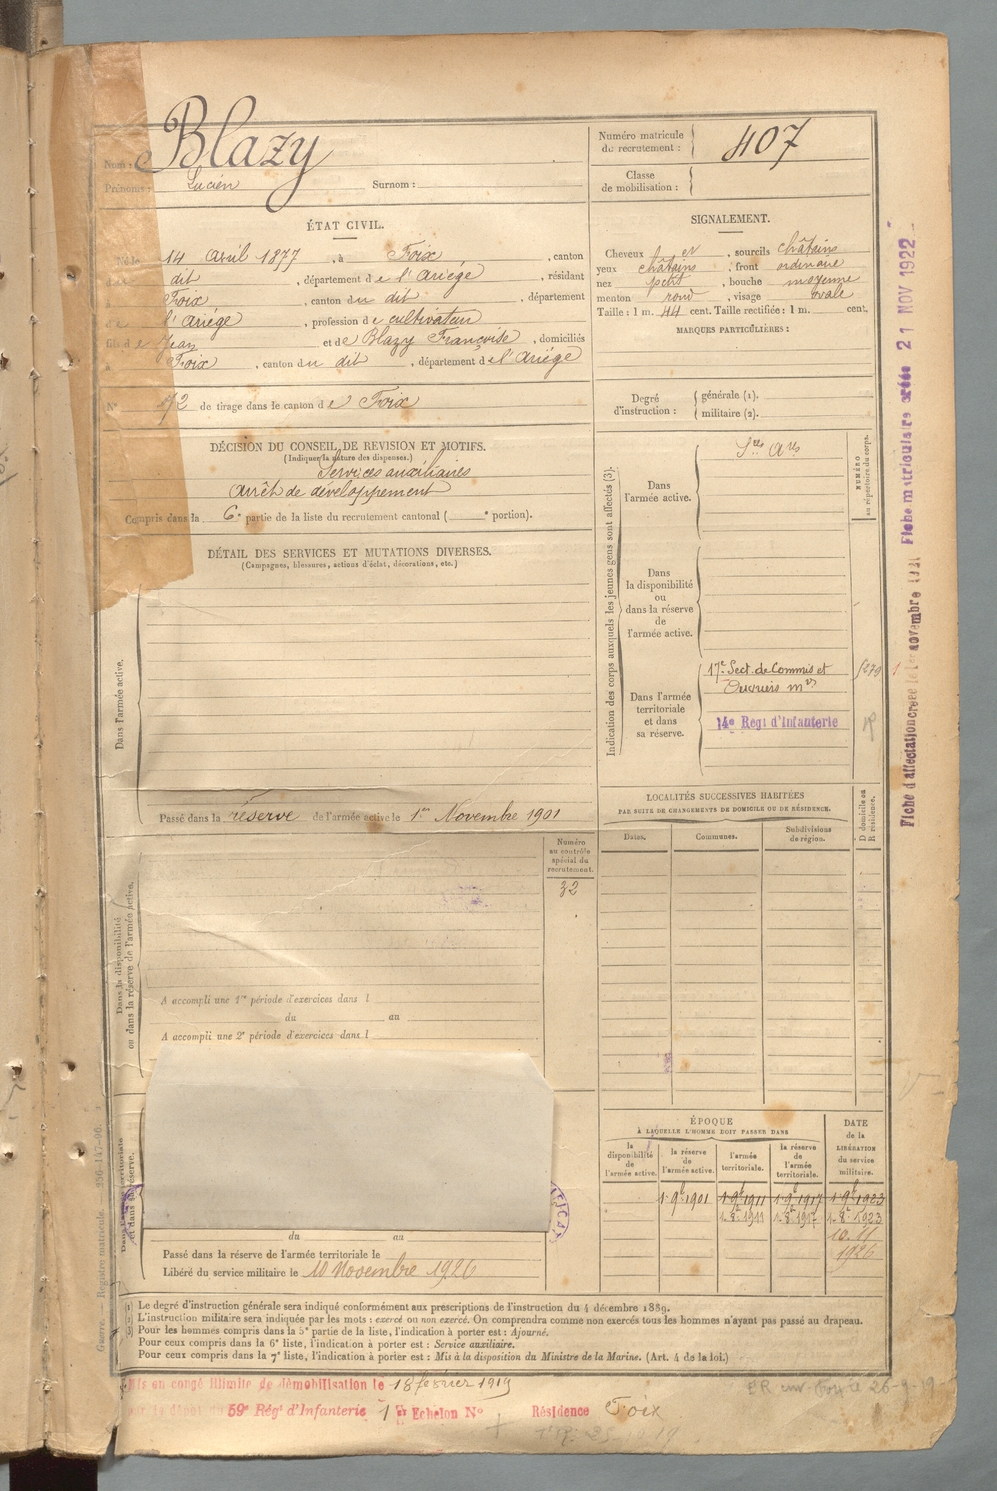 Nom : Blazy
Prénoms : Lucien Surnom :
Numéro matricule du recrutement : 407
Classe de mobilisation :
ÉTAT CIVIL.
Né le 14 avril 1877, à Foix, canton
du dit, département de l'Ariège, résidant
à Foix, canton du dit, département
de l'Ariège, profession de cultivateur
fils de Jean et de Blazy Françoise, domiciliés
à Foix, canton du dit, département de l'Ariège
N° 72 de tirage dans le canton de Foix
SIGNALEMENT.
Cheveux et, sourcils châtains
yeux châtains, front ordinaire
nez petit, bouche moyenne
menton rond, visage ovale
Taille : 1 m. 44 cent. Taille rectifiée : 1 m. cent.
MARQUES PARTICULIÈRES :
Degré d'instruction : générale (1).
militaire (2).
DÉCISION DU CONSEIL DE REVISION ET MOTIFS.
(Indiquer la nature des dispenses.)
Services auxiliaires
arrêt de développement
Compris dans la 6e partie de la liste du recrutement cantonal ( e portion).
DÉTAIL DES SERVICES ET MUTATIONS DIVERSES.
(Campagnes, blessures, actions d'éclat, décorations, etc.)
Dans l'armée active.
Passé dans la réserve de l'armée active le 1er Novembre 1901
Indication des corps auxquels les jeunes gens sont affectés (3).
NUMÉRO au répertoire du corps.
Dans l'armée active.
Sces Ares
Dans la disponibilité ou dans la réserve de l'armée active.
Dans l'armée territoriale et dans sa réserve.
17e Sect. de Commis et
Ouvriers mres
14e Régt d'Infanterie
LOCALITÉS SUCCESSIVES HABITÉES
PAR SUITE DE CHANGEMENTS DE DOMICILE OU DE RÉSIDENCE.
Dates. Communes. Subdivisions de région.
D domicile ou R résidence.
Numéro au contrôle spécial du recrutement.
32
Dans la disponibilité ou dans la réserve de l'armée active.
A accompli une 1re période d'exercices dans l
du au
A accompli une 2e période d'exercices dans l
du au
Passé dans la réserve de l'armée territoriale le
Libéré du service militaire le 10 Novembre 1926
ÉPOQUE
À LAQUELLE L'HOMME DOIT PASSER DANS
la disponibilité de l'armée active.
la réserve de l'armée active.
l'armée territoriale.
la réserve de l'armée territoriale.
DATE de la LIBÉRATION du service militaire.
1 9b 1901 1 9b 1911 1 9b 1917 1 9b 1923
1. 8b 1911 1. 8b 1917 1. 8b 1923
10. 11
1926
(1) Le degré d'instruction générale sera indiqué conformément aux prescriptions de l'instruction du 4 décembre 1889.
(2) L'instruction militaire sera indiquée par les mots : exercé ou non exercé. On comprendra comme non exercés tous les hommes n'ayant pas passé au drapeau.
(3) Pour les hommes compris dans la 5e partie de la liste, l'indication à porter est : Ajourné.
Pour ceux compris dans la 6e liste, l'indication à porter est : Service auxiliaire.
Pour ceux compris dans la 7e liste, l'indication à porter est : Mis à la disposition du Ministre de la Marine. (Art. 4 de la loi.)
Mis en congé illimité de démobilisation le 18 février 1919
par le dépôt du 59e Régt d'Infanterie 1er Echelon N° Résidence Foix
Fiche matriculaire créée 21 NOV 1922
Fiche d'affectation créée le novembre
Guerre. Registre matricule.